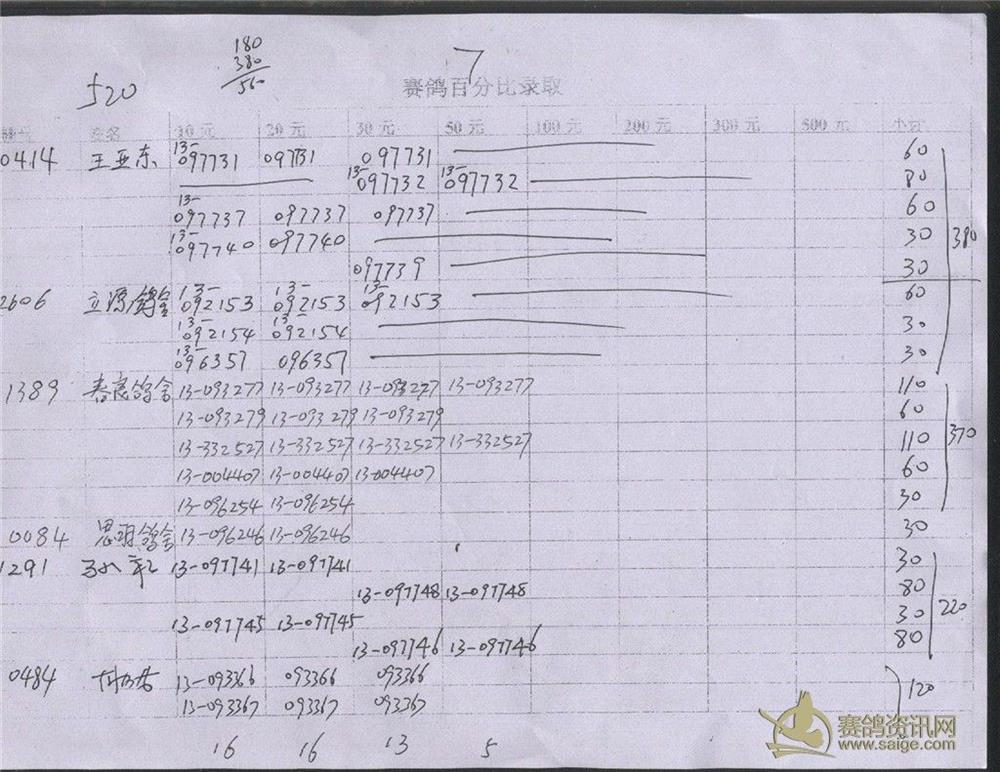 7
180
380
56-
520
赛鸽百分比录取
棚号 姓名 10元 20元 30元 50元 100元 200元 300元 500元 小计
0414 王亚东 13-097731 097731 097731 60
13-097732 13-097732 80
13-097737 097737 097737 60
13-097740 097740 30 380
097739 30
2606 立源鸽舍 13-092153 13-092153 13-092153 60
13-092154 13-092154 30
13-096357 096357 30
1389 春良鸽舍 13-093277 13-093277 13-093277 13-093277 110
13-093279 13-093279 13-093279 60
13-332527 13-332527 13-332527 13-332527 110 370
13-004407 13-004407 13-004407 60
13-096254 13-096254 30
0084 思羽鸽舍 13-096246 13-096246 30
1291 13-097741 13-097741 30
13-097748 13-097748 80
13-097745 13-097745 30 220
13-097746 13-097746 80
0484 13-093366 093366 093366 120
13-093367 093367 093367
16 16 13 5
赛鸽资讯网
www.saige.com